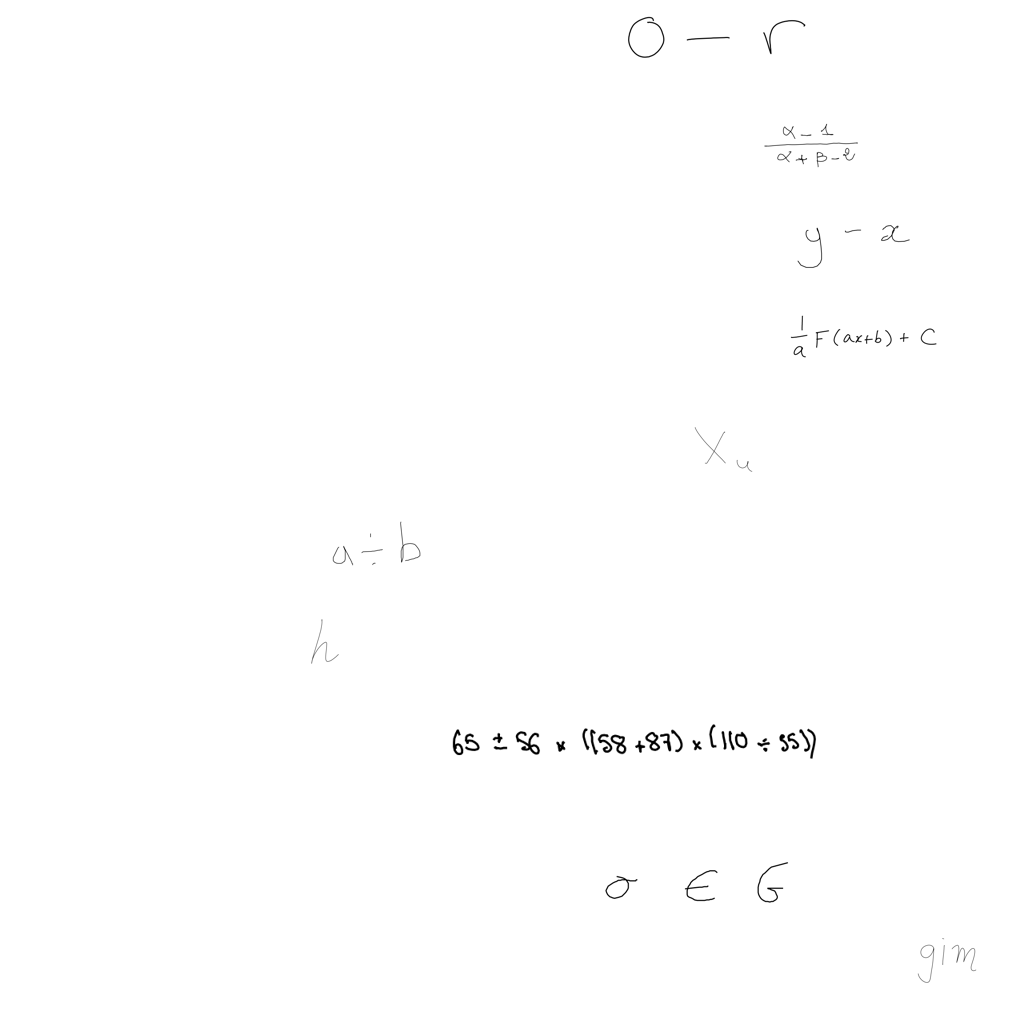 0 - r
\frac{\alpha - 1}{\alpha + \beta - 2}
y - x
\frac{1}{a} F(ax+b) + C
X_u
a ÷ b
h
65 ± 56 × ((58 + 87) × (110 ÷ 55))
σ ∈ G
gim